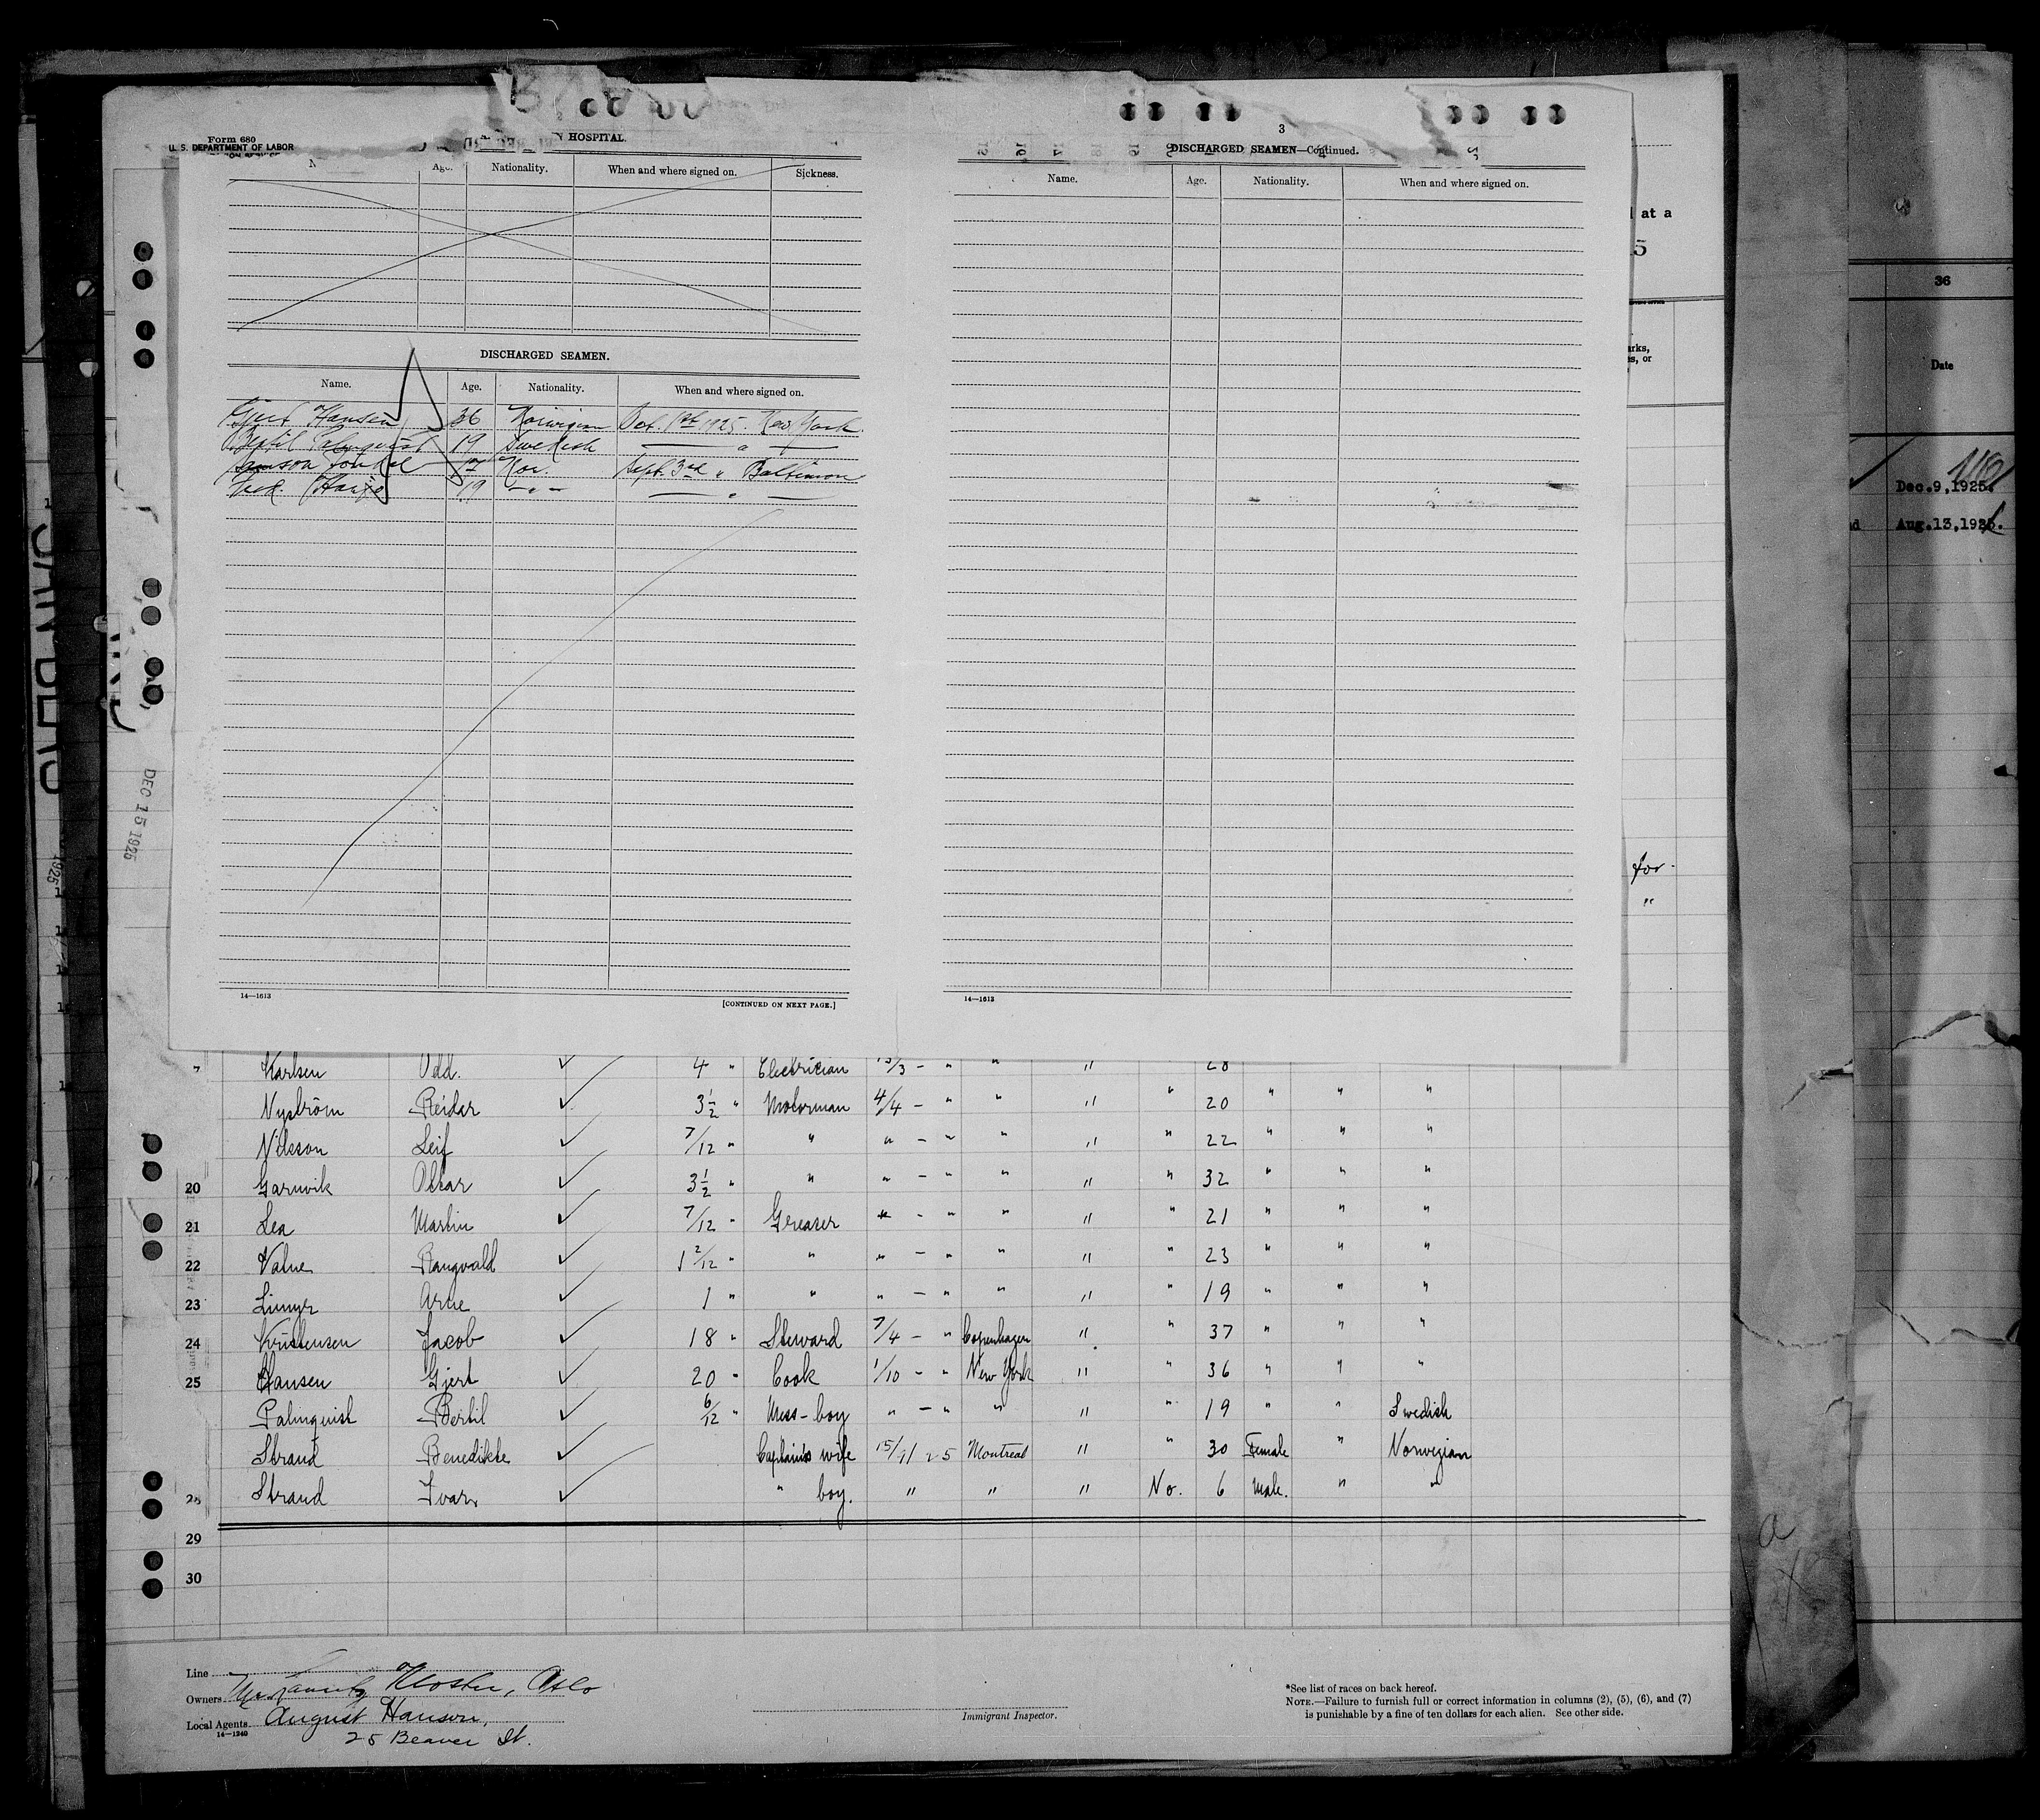 Form 680
U. S. DEPARTMENT OF LABOR
HOSPITAL.
Age. Nationality. When and where signed on. Sickness.
DISCHARGED SEAMEN.
Name. Age. Nationality. When and where signed on.
Gjert Hansen 36 Norwegian Oct. 1st 1925. New York
Bertil Palmquist 19 Swedish — " —
17 Nor. Sept. 3rd " Baltimore
19 — " — — " —
14—1613
[CONTINUED ON NEXT PAGE.]
3
DISCHARGED SEAMEN—Continued.
Name. Age. Nationality. When and where signed on.
14—1613
at a
5
arks,
es, or
36
Date
Dec.9,1925.
Aug.13,1925.
for
"
DEC 15 1925
1925
Karlsen Odd. 4 " Electrician 13/3 - " " " 28
Nyström Reidar 3½ " Motorman 4/4 - " " " " 20 " " "
Nilsson Leif 7/12 " " " - " " " " 22 " " "
20 Garnvik Ottar 3½ " " " - " " " " 32 " " "
21 Lea Martin 7/12 " Greaser " - " " " " 21 " " "
22 Valne Rangvald 1 2/12 " " " - " " " " 23 " " "
23 Limyr Arne 1 " " " - " " " " 19 " " "
24 Kristensen Jacob 18 " Steward 7/4 - " Copenhagen " " 37 " " "
25 Hansen Gjert 20 " Cook 1/10 - " New York " " 36 " " "
Palmquist Bertil 6/12 " Mess-boy " - " " " " 19 " " Swedish
Strand Benedikte Captain's wife 15/11 25 Montreal " " 30 Female " Norwegian
28 Strand Ivar " boy. " " " No. 6 Male. " "
29
30
Line
Owners Kloster, Oslo
Local Agents. August Hanson,
14—1240
25 Beaver St.
Immigrant Inspector.
*See list of races on back hereof.
NOTE.—Failure to furnish full or correct information in columns (2), (5), (6), and (7)
is punishable by a fine of ten dollars for each alien. See other side.